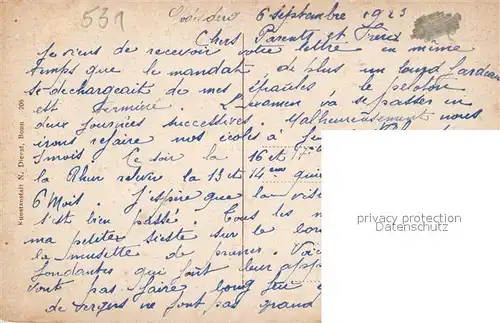 531
6 septembre 1923
Chers Parents et
Je viens de recevoir votre lettre en même
temps que le mandat, de plus un lourd fardeau
se déchargeait de mes épaules le peloton
est terminé L'examen va se passer en
deux journées successives. Malheureusement nous
irons refaire nos écoles à
3 mois Ce soir la 16 et 17
la Rhur relève la 13 et 14ème qui
6 Mois. J'espère que la
s'est bien passé. Tous les
ma petite sieste sur le
musette de prunes.
fondantes qui font leur
vont pas faire long
de vergers ne font pas grand
Kunstanstalt N. Dierat, Bonn 206
privacy protection
Datenschutz